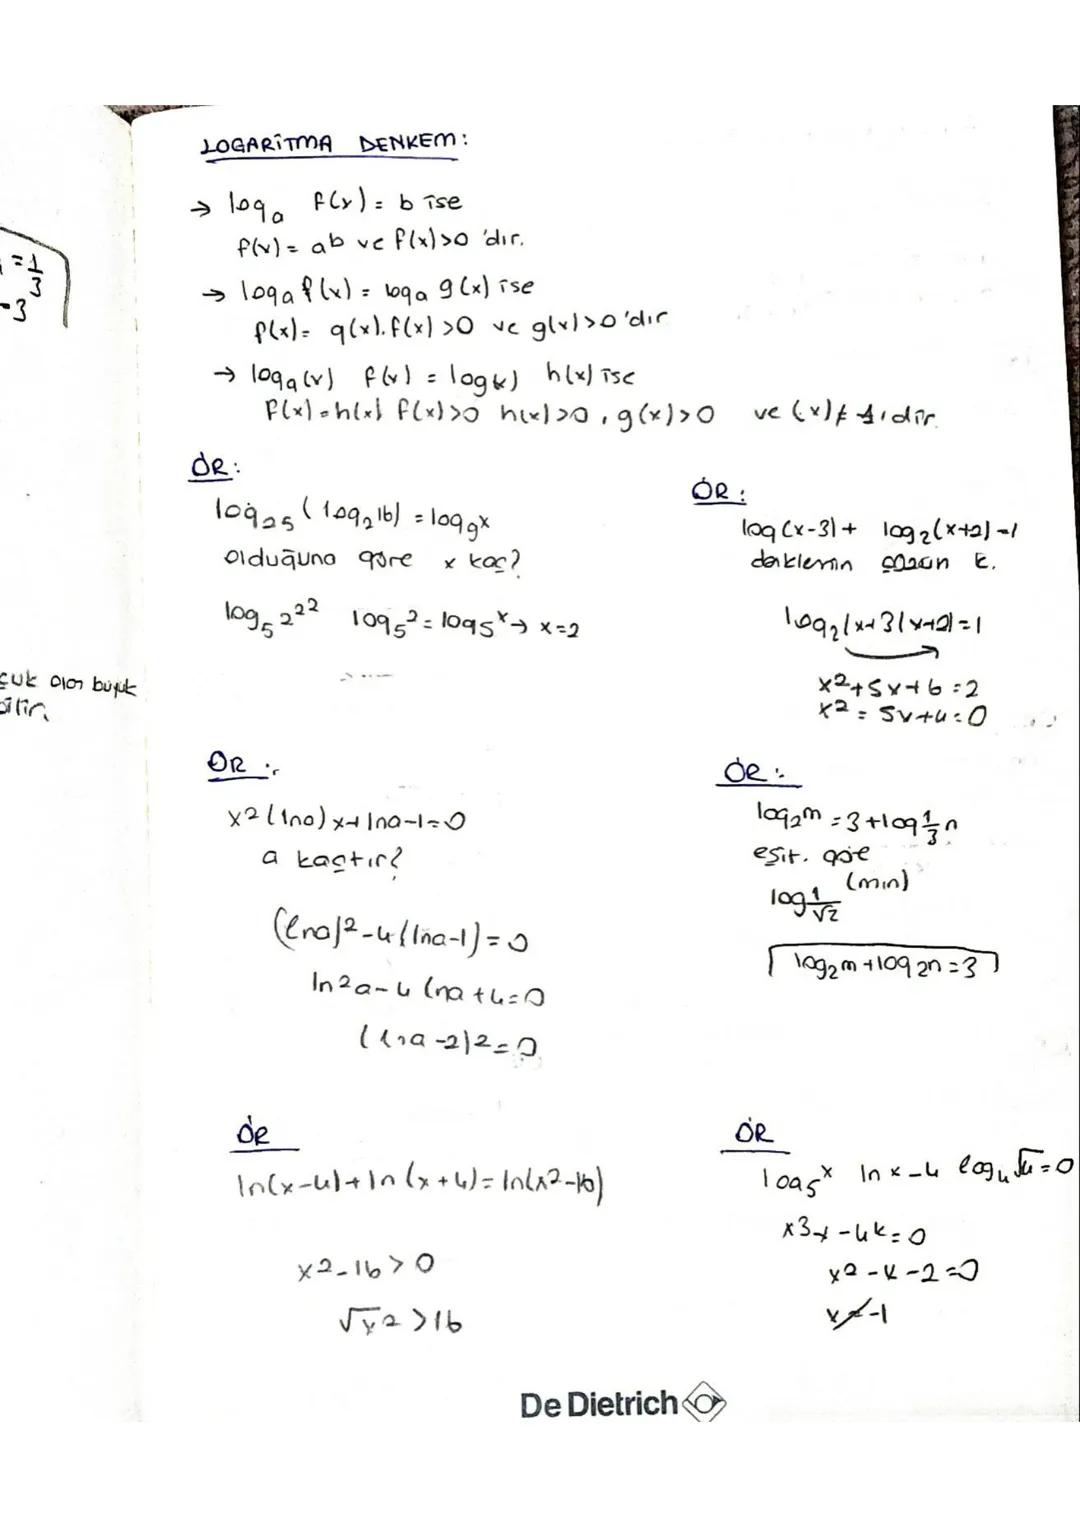 LOGARİTMA DENKEM:
→ logₐ f(x) = b ise
f(x) = ab ve f(x)>0 'dır.
→ logₐ f(x) = logₐ g(x) ise
f(x) = g(x). f(x) >0 ve g(x)>0'dır
→ logₐ(x) f(x) = log(x) h(x) ise
f(x)=h(x) f(x)>0 h(x)>0, g(x)>0 ve (x)≠1'dir.
= 1/3
-3
çuk olan büyük
ilir.
ÖR:
log₂₅ (log₂16) = log₉x
olduğuna göre x kaç?
log₅2²² log₅² = log₅ˣ → x=2
ÖR:
log(x-3)+ log₂(x+2)=1
denklemin çözün k.
log₂(x+3(x+2)=1
x²+5x+6=2
x² = 5x+4=0
ÖR:
x²(lna)x+lna-1=0
a kaçtır?
(lna)²-4(lna-1)=0
ln²a-4lna+4=0
(lna-2)2=0
ÖR:
log₂m = 3+log 1/3 n
eşit. göre
log 1/√2 (min)
log₂m+log2n=3
ÖR
ln(x-4)+ln(x+4)=ln(x²-16)
x²-16>0
√x2 >16
ÖR
log₅ˣ lnx-4 log₄√4=0
x3x-4k=0
x²-x-2=0
x≠-1
De Dietrich